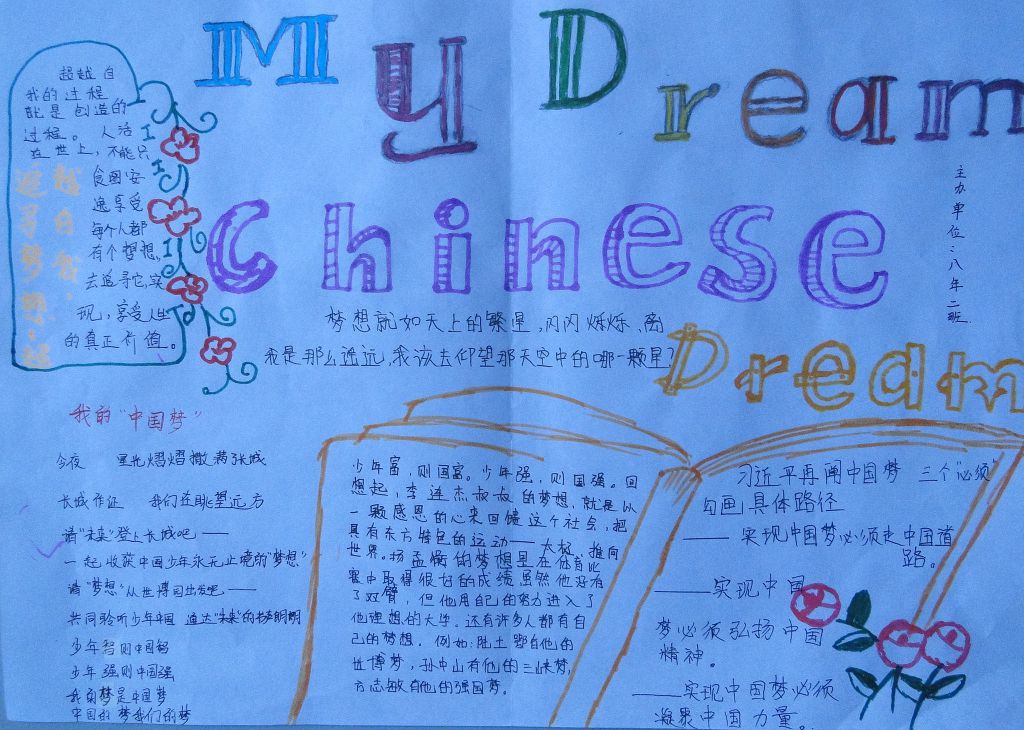 My Dream
Chinese
Dream
主办单位:八年二班
超越自
我的过程
就是创造的
过程。人活
在世上,不能只
贪图安
逸享受
每个人都
有个梦想,
去追寻它,实
现,享受人生
的真正价值。
超越自我·
追寻梦想·超
梦想就如天上的繁星,闪闪烁烁,离
我是那么遥远,我该去仰望那天空中的哪一颗星?
我的“中国梦”
今夜 星光熠熠撒满长城
长城作证 我们在眺望远方
请“未来”登上长城吧——
一起收获中国少年永无止境的“梦想”
请“梦想”从世博园出发吧——
共同聆听少年中国 通达“未来”的
少年智则中国智
少年强则中国强
我的梦是中国梦
中国的梦我们的梦
少年富,则国富。少年强,则国强。回
想起,李连杰叔叔的梦想,就是以
一颗感恩的心来回馈这个社会,把
具有东方特色的运动——太极,推向
世界。杨孟衡的梦想是在体育比
赛中取得很好的成绩虽然他没有
了双臂,但他用自己的努力进入了
他理想的大学。还有许多人都有自
己的梦想,例如:陆士鄂有他的
世博梦,孙中山有他的三峡梦,
方志敏有他的强国梦。
习近平再阐中国梦 三个“必须”
勾画具体路径
——实现中国梦必须走中国道
路。
——实现中国
梦必须弘扬中国
精神。
——实现中国梦必须
凝聚中国力量。